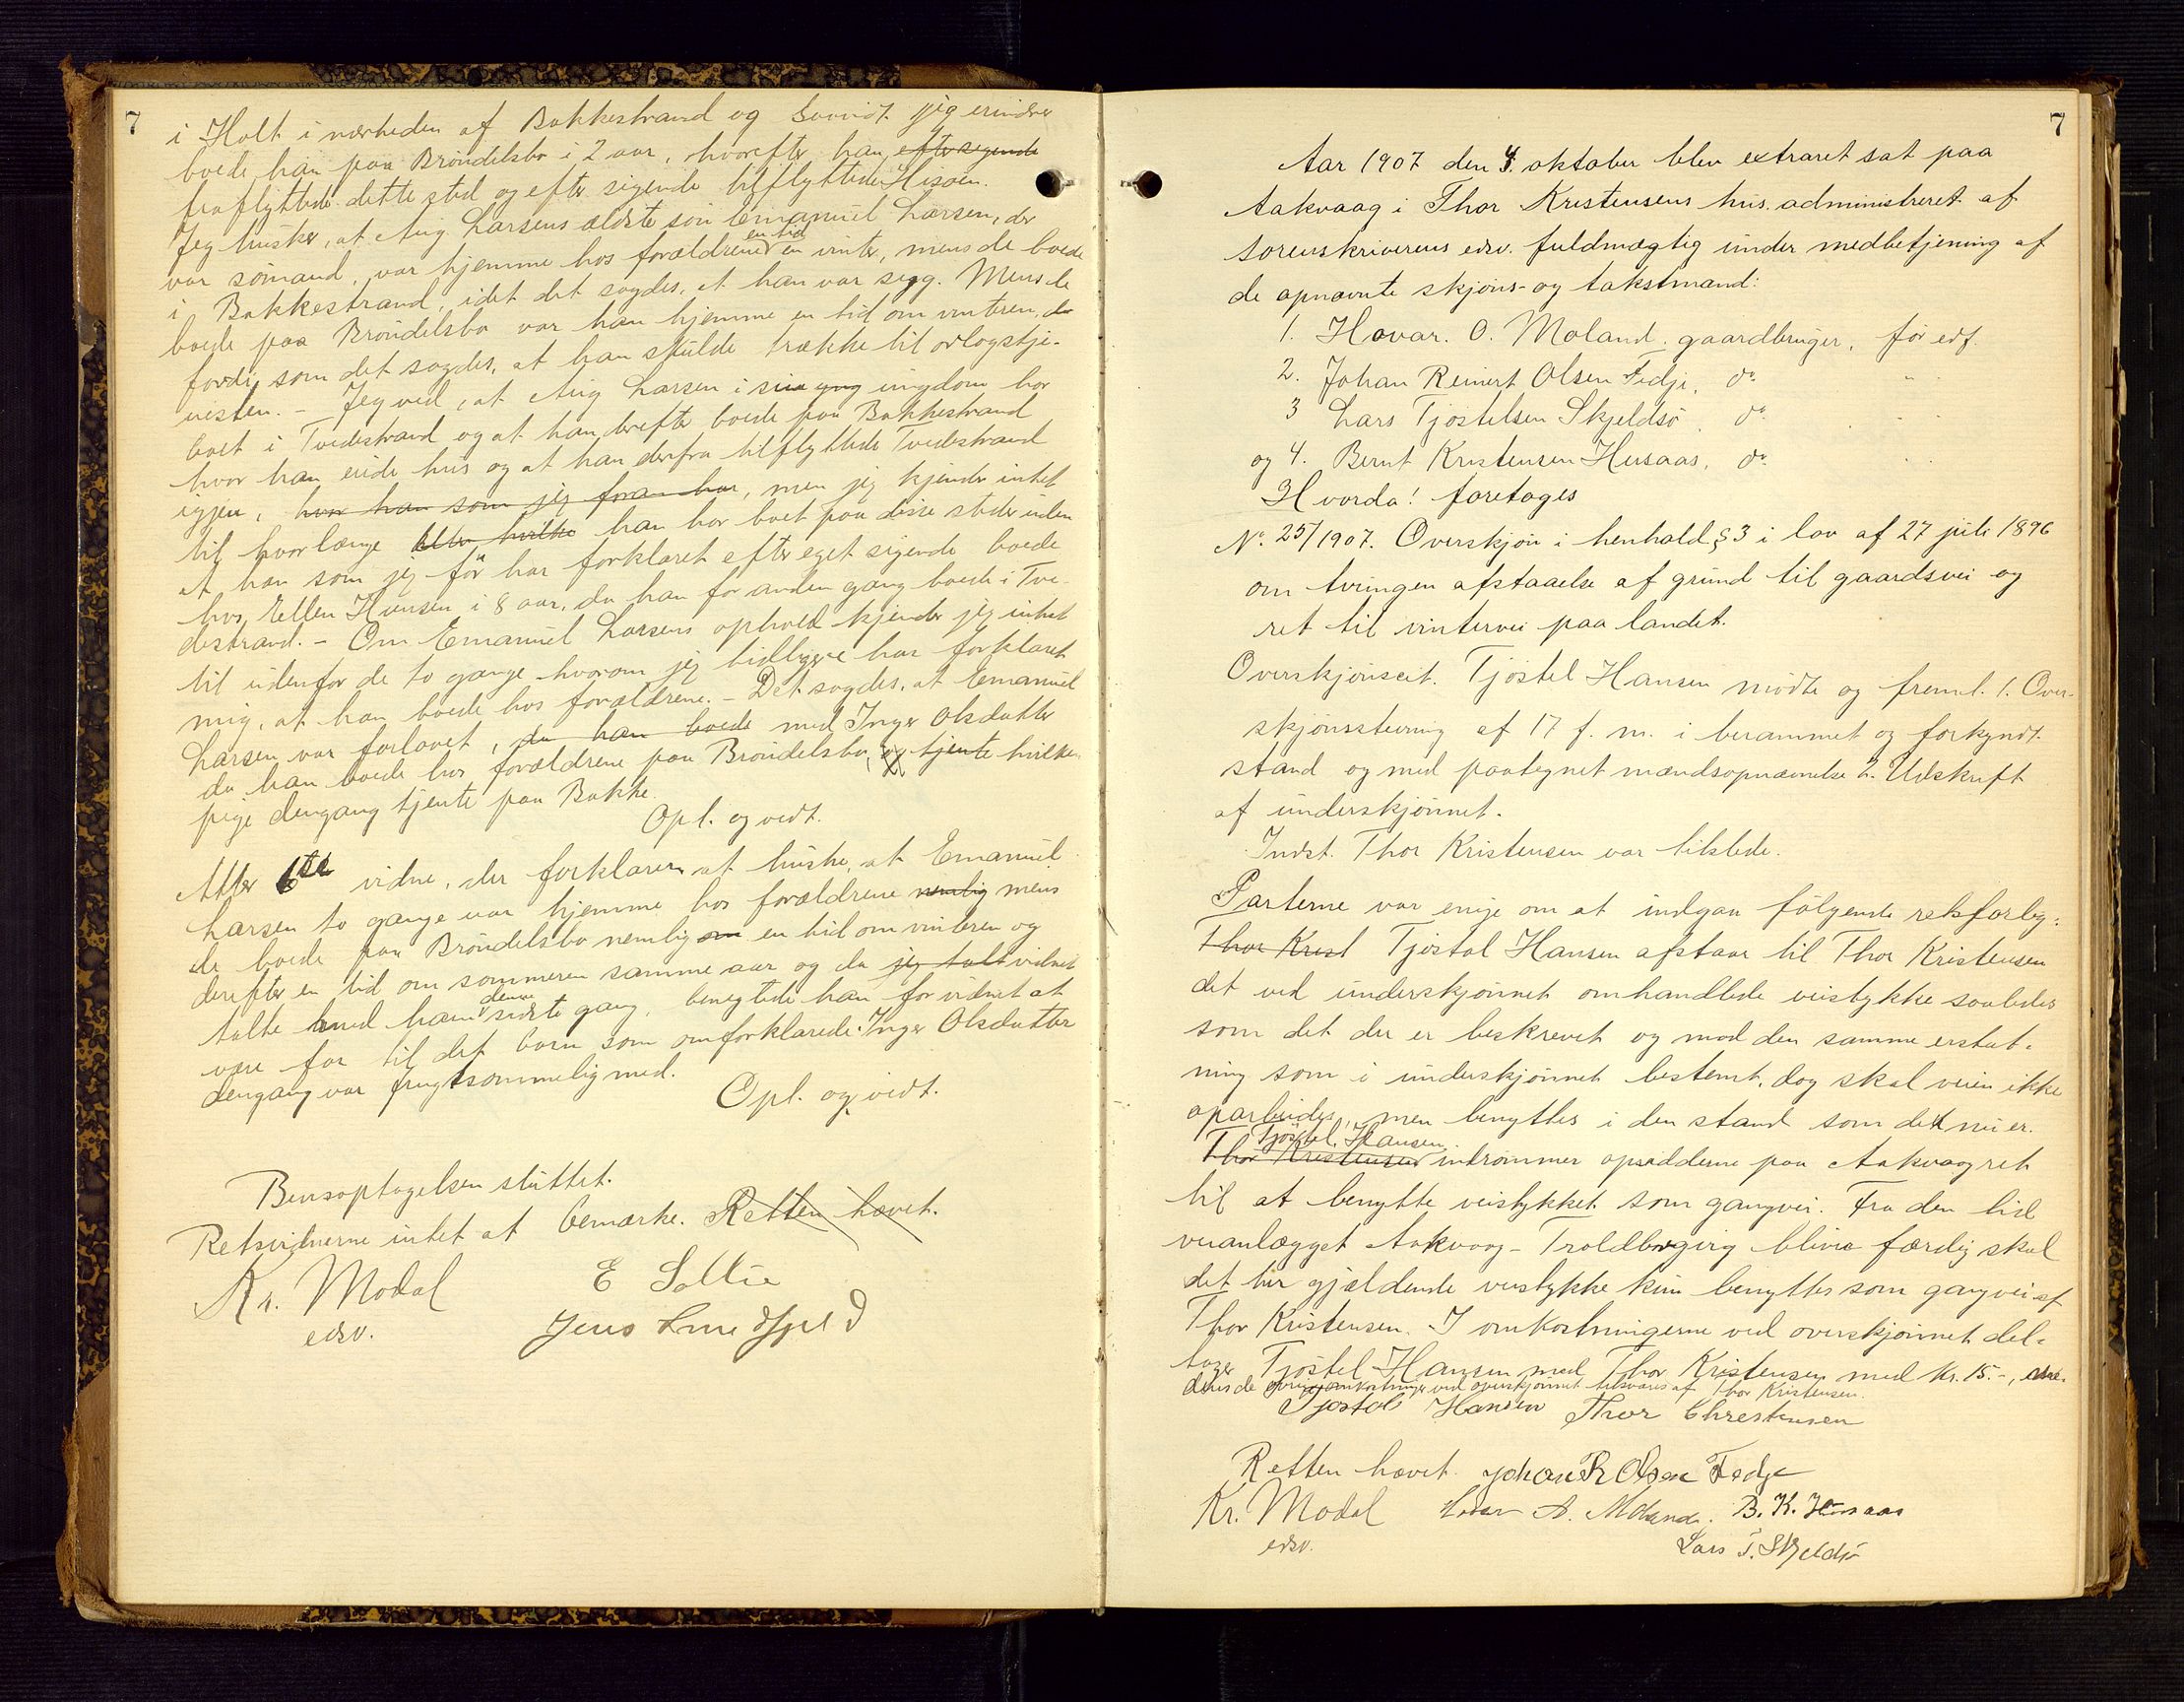 7
i Holt i nærheden af Bakkestrand og saavidt jeg erindrer
boede han paa Bröndelsbo i 2 aar, hvorefter han eftersigende
fraflyttede dette sted og efter sigende tilflyttede Hisöen.
Jeg husker, at Aug Larsens ældste sön Emanuel Larsen, der
var sömand, var hjemme hos forældrene en tid en vinter, mens de boede
i Bakkestrand, idet det sagdes, at han var syg. Mens de
boede paa Bröndelsbo var han hjemme en tid om vinteren, da
fordi, som det sagdes, at han skulde trække til orlogstje-
nesten. - Jeg ved, at Aug Larsen i sin yng ungdom har
boet i Tvedestrand og at han derefter boede paa Bakkestrand
hvor han eiede hus og at han derfra tilflyttede Tvedestrand
igjen, hvor han som jeg foran har, men jeg kjender intet
til hvorlænge eller hvilke han har boet paa disse steder uden
at han som jeg för har forklaret efter eget sigende boede
hos Ellen Hansen i 8 aar, da han for anden gang boede i Tve-
destrand. - Om Emanuel Larsens ophold kjender jeg intet
til udenfor de to gange hvorom jeg tidligere har forklaret
mig, at han boede hos forældrene. - Det sagdes, at Emanuel
Larsen var forlovet, da han boede med Inger Olsdatter
da han boede hos forældrene paa Bröndelsbo, og tjente hvilken
pige dengang tjente paa Bakke.
Opl. og vedt.
Atter 6te vidne, der forklarer at huske, at Emanuel
Larsen to gange var hjemme hos forældrene nemlig mens
de boede paa Bröndelsbo nemlig om en tid om vinteren og
derefter en tid om sommeren samme aar og da jeg talt vidnet
talte med ham denne sidste gang, benegtede han for vidnet at
være far til det barn som omforklarede Inger Olsdatter
dengang var frugtsommelig med.
Opl. og vedt.
Bevisoptagelsen sluttet.
Retsvidnerne intet at bemærke. Retten hævet.
Kr. Modal E Sollie
edsv. Jens Smedsfjeld
7
Aar 1907 den 4. oktober blev extraret sat paa
Aakvaag i Thor Kristensens hus administreret af
sorenskriverens edsv. fuldmægtig under medbetjening af
de opnævnte skjöns- og takstmænd:
1. Hovar. O. Moland. gaardbruger, för edf.
2. Johan Reinert Olsen Fedje, do "
3 Lars Tjöstelsen Skjeldsö, do " "
og 4. Bernt Kristensen Husaas, do " "
Hvorda! foretoges
No. 25/1907. Overskjön i henhold § 3 i lov af 27 juli 1896
om tvungen afstaaelse af grund til gaardsvei og
ret til vintervei paa landet.
Overskjönscit. Tjöstel Hansen mödte og freml. 1. Over-
skjönsstevning af 17 f. m. i berammet og forkyndt
stand og med paategnet mændsopnævnelse 2. Udskrift
af underskjönnet.
Indst. Thor Kristensen var tilstede.
Parterne var enige om at indgaa fölgende retsforlig:
Thor Krist Tjöstol Hansen afstaar til Thor Kristensen
det ved underskjönnet omhandlede veistykke saaledes
som det der er beskrevet og mod den samme erstat-
ning som i underskjönnet bestemt, dog skal veien ikke
oparbeides, men benyttes i den stand som det nu er.
Tjöstel Hansen
Thor Kristensen indrömmer opsidderne paa Aakvaag ret
til at benytte veistykket som gangvei. Fra den tid
veianlægget Aakvaag - Troldbergvig bliver færdig skal
det her gjældende veistykke kun benyttes som gangvei af
Thor Kristensen. I omkostningerne ved overskjönnet del-
tager Tjöstel Hansen med Thor Kristensen med kr. 15.-, me-
dens de övrige omkostninger ved overskjönnet tilsvares af Thor Kristensen.
Tjöstol Hansen Thor Christensen
Retten hævet. Johan R Olsen Fedje
Kr. Modal Hovar O. Moland. B. K. Husaas
edsv. Lars T. Skjeldsö